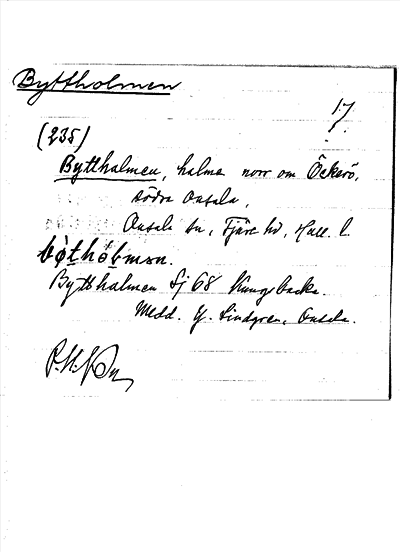 Byttholmen
17/.
(235)
Byttholmen, holme norr om Öckerö,
södra Onsala,
Onsala sn, Fjäre hd, Hall. l.
bøthòlmən.
Byttholmen Sj 68 Kungsbacka.
Medd. Y. Lindgren, Onsala.